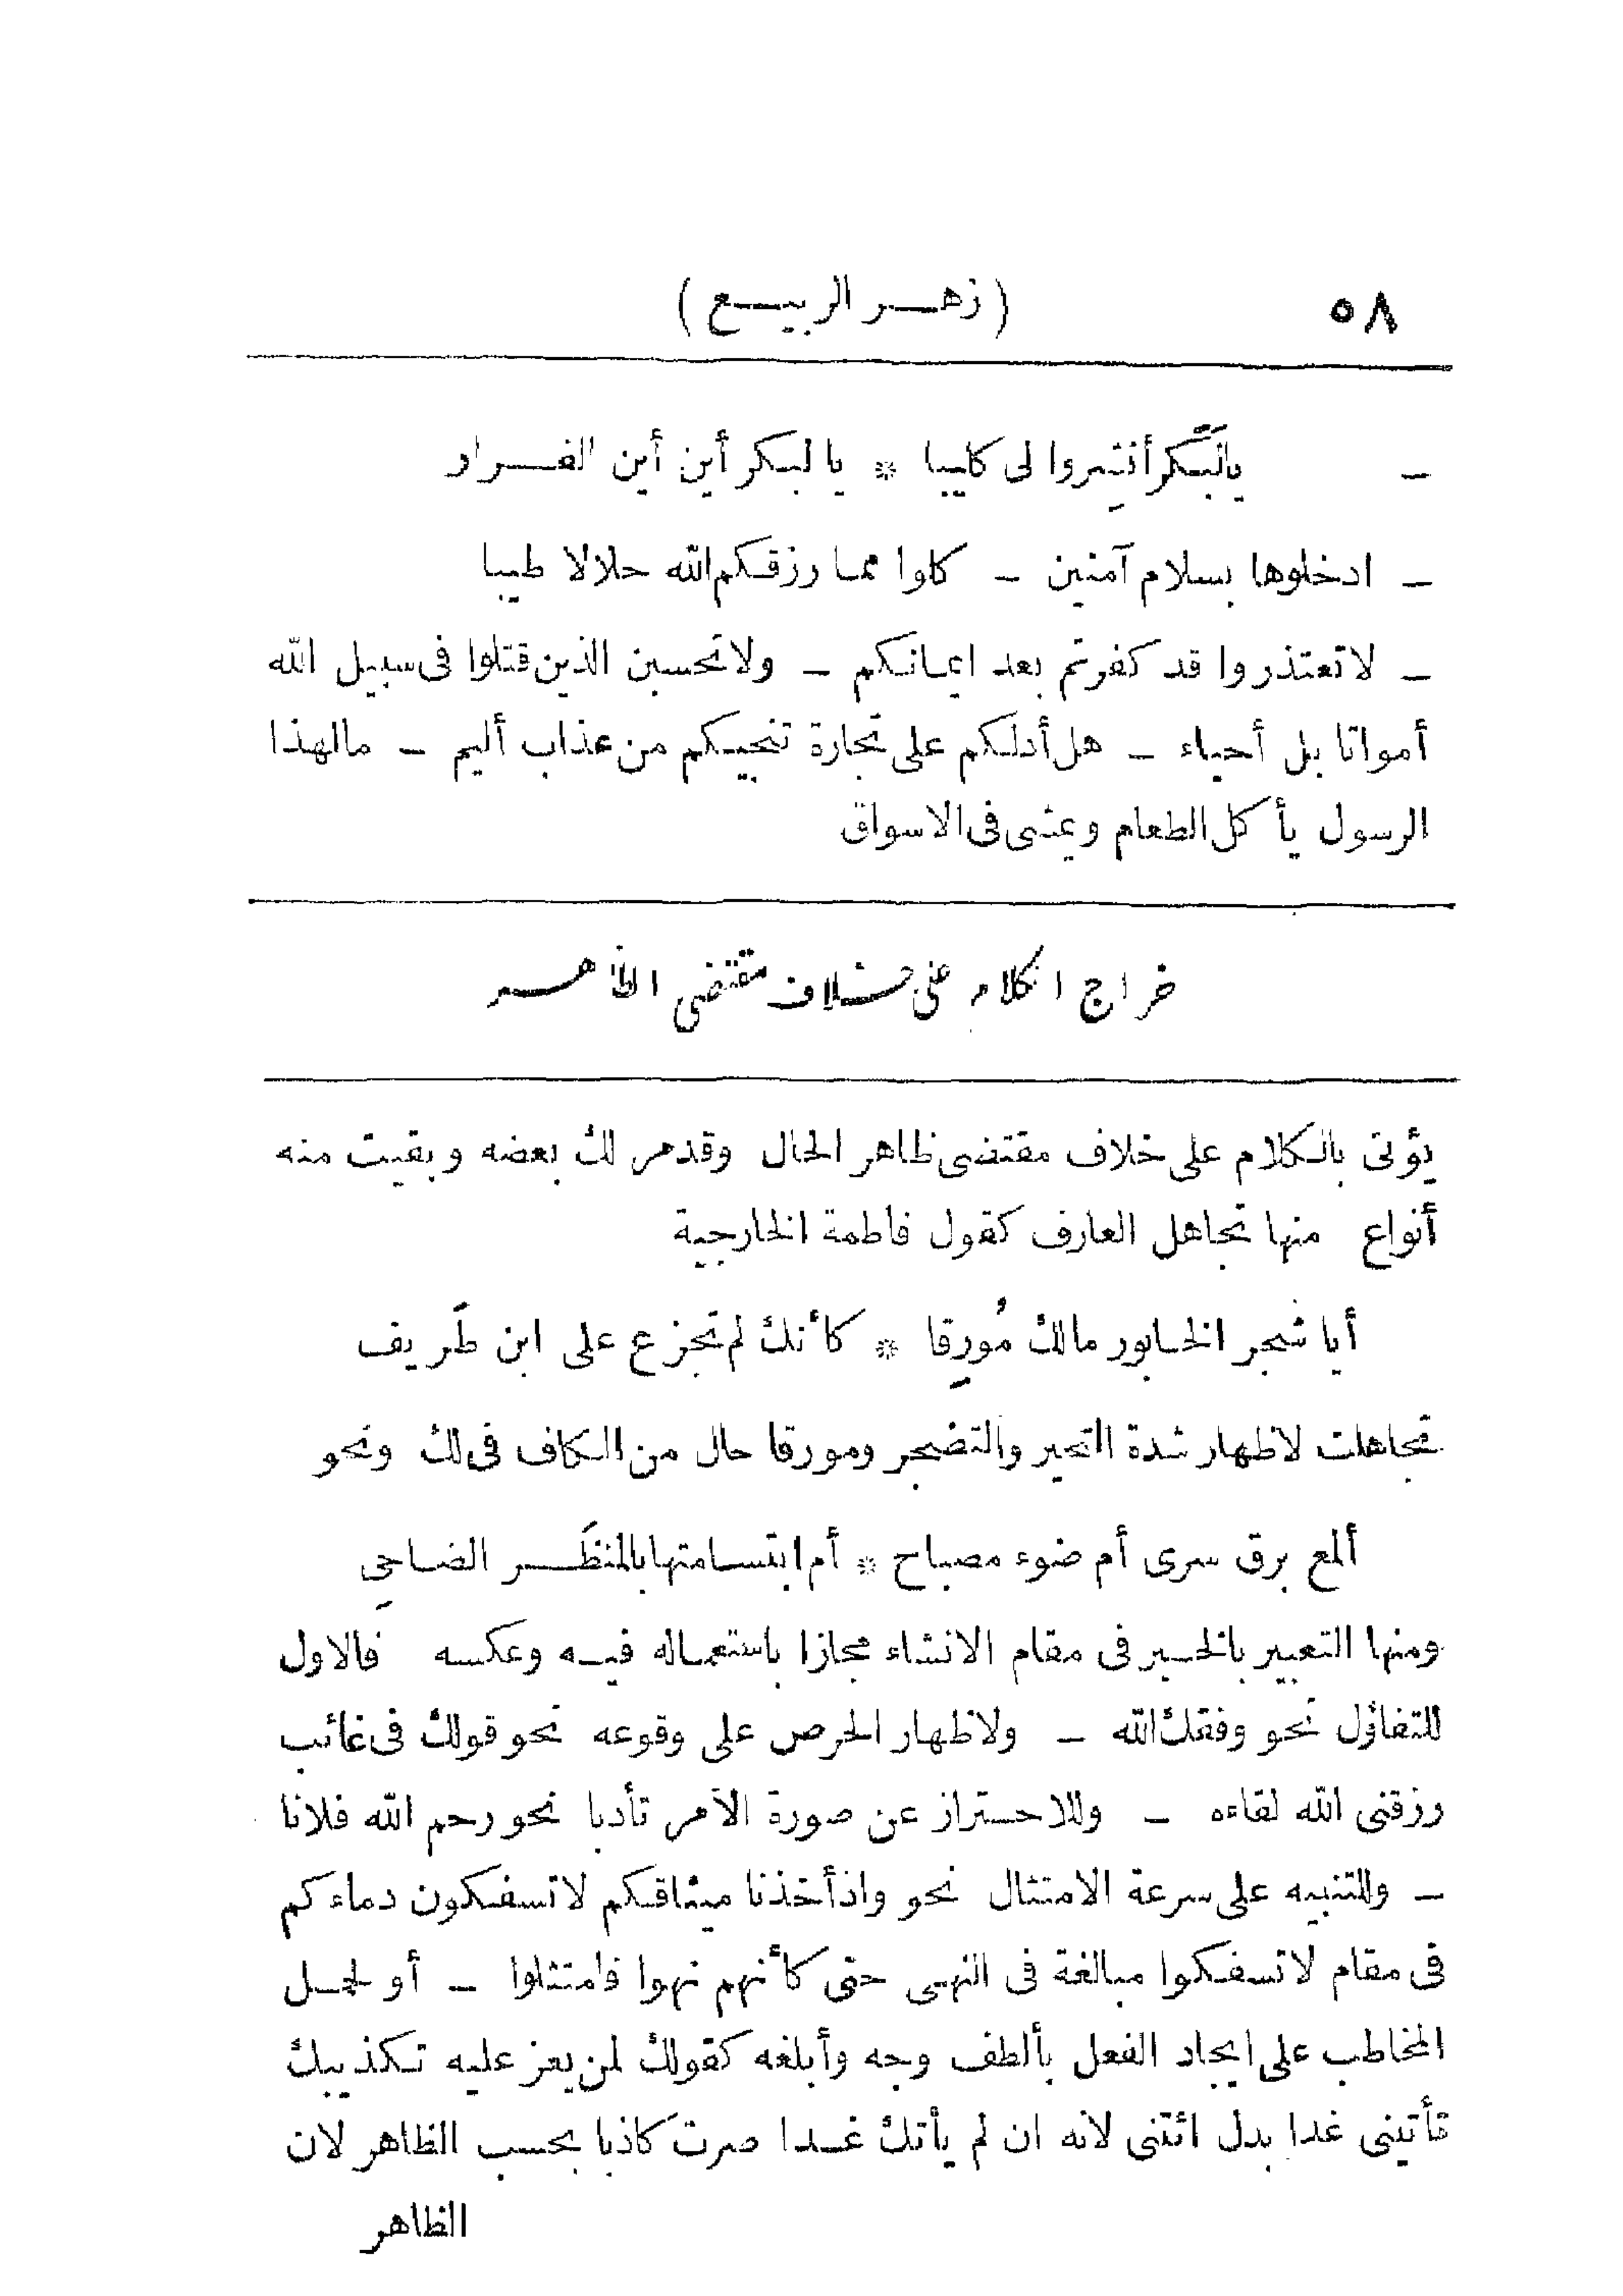 ٥٨ (زهر الربيع)
– يالَبَكر أنشِروا لى كليبا * يا لبكر أين أين الفرار
– ادخلوها بسلام آمنين – كلوا مما رزقكم الله حلالا طيبا
– لا تعتذروا قد كفرتم بعد ايمانكم – ولا تحسبن الذين قتلوا فى سبيل الله
أمواتا بل أحياء – هل أدلكم على تجارة تنجيكم من عذاب أليم – مالهذا
الرسول يأكل الطعام ويمشى فى الاسواق
خراج الكلام على خلاف مقتضى الظاهر
يؤتى بالكلام على خلاف مقتضى ظاهر الحال وقدمر لك بعضه وبقيت منه
أنواع منها تجاهل العارف كقول فاطمة الخارجية
أيا شجر الخابور مالك مُورِقا * كأنك لم تجزع على ابن طَريف
تجاهلت لاظهار شدة التحير والتضجر ومورقا حال من الكاف فى لك ونحو
ألمع برق سرى أم ضوء مصباح * أم ابتسامتها بالمنظَر الضاحِى
ومنها التعبير بالخبر فى مقام الانشاء مجازا باستعماله فيه وعكسه فالاول
للتفاؤل نحو وفقك الله – ولاظهار الحرص على وقوعه نحو قولك فى غائب
رزقنى الله لقاءه – وللاحتراز عن صورة الامر تأدبا نحو رحم الله فلانا
– وللتنبيه على سرعة الامتثال نحو واذ أخذنا ميثاقكم لا تسفكون دماءكم
فى مقام لا تسفكوا مبالغة فى النهى حتى كأنهم نهوا فامتثلوا – أو لحمل
المخاطب على ايجاد الفعل بألطف وجه وأبلغه كقولك لمن يعز عليه تكذيبك
تأتينى غدا بدل ائتنى لانه ان لم يأتك غدا صرت كاذبا بحسب الظاهر لان
الظاهر